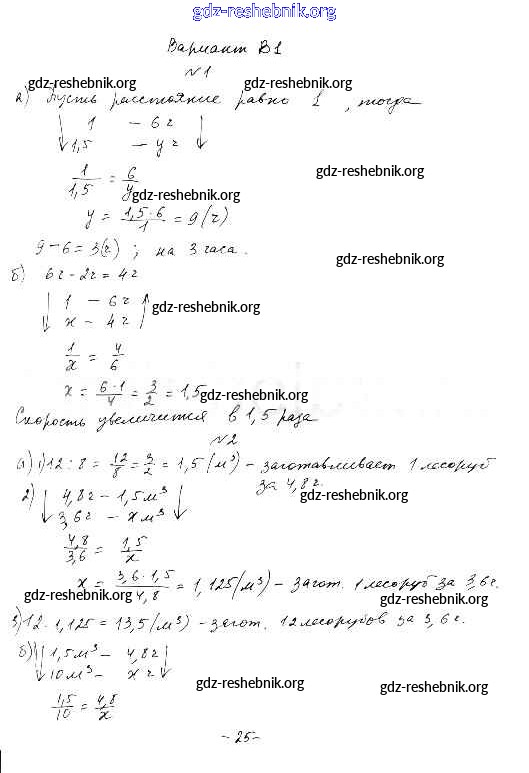 gdz-reshebnik.org
Вариант В1
№1
gdz-reshebnik.org gdz-reshebnik.org
а) Пусть расстояние равно 1, тогда
↓ 1 – 6 ч ↓
1,5 – y ч
gdz-reshebnik.org
1/1,5 = 6/y
gdz-reshebnik.org
y = 1,5·6/1 = 9 (ч)
9 – 6 = 3 (ч); на 3 часа.
gdz-reshebnik.org
б) 6ч – 2ч = 4ч
↓ 1 – 6 ч ↑
x – 4 ч
gdz-reshebnik.org
1/x = 4/6
x = 6·1/4 = 3/2 = 1,5
gdz-reshebnik.org
Скорость увеличится в 1,5 раза
№2
а) 1) 12 : 8 = 12/8 = 3/2 = 1,5 (м³) – заготавливает 1 лесоруб
за 4,8 ч.
gdz-reshebnik.org
2) ↓ 4,8 ч – 1,5 м³ ↓
3,6 ч – x м³
4,8/3,6 = 1,5/x
x = 3,6·1,5/4,8 = 1,125 (м³) – загот. 1 лесоруб за 3,6 ч.
gdz-reshebnik.org gdz-reshebnik.org
3) 12 · 1,125 = 13,5 (м³) – загот. 12 лесорубов за 3,6 ч.
б) 1) ↓ 1,5 м³ – 4,8 ч ↓
10 м³ – x ч
gdz-reshebnik.org gdz-reshebnik.org
1,5/10 = 4,8/x
- 25 -